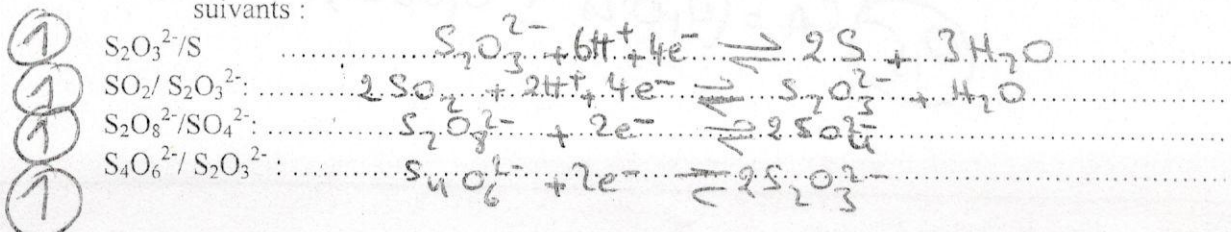 suivants :
① S₂O₃²⁻/S ........ S₂O₃²⁻ + 6H⁺ + 4e⁻ ⇌ 2S + 3H₂O ........
① SO₂/ S₂O₃²⁻: ........ 2SO₂ + 2H⁺ + 4e⁻ ⇌ S₂O₃²⁻ + H₂O ........
① S₂O₈²⁻/SO₄²⁻: ........ S₂O₈²⁻ + 2e⁻ ⇌ 2SO₄²⁻ ........
① S₄O₆²⁻/ S₂O₃²⁻: ........ S₄O₆²⁻ + 2e⁻ ⇌ 2S₂O₃²⁻ ........